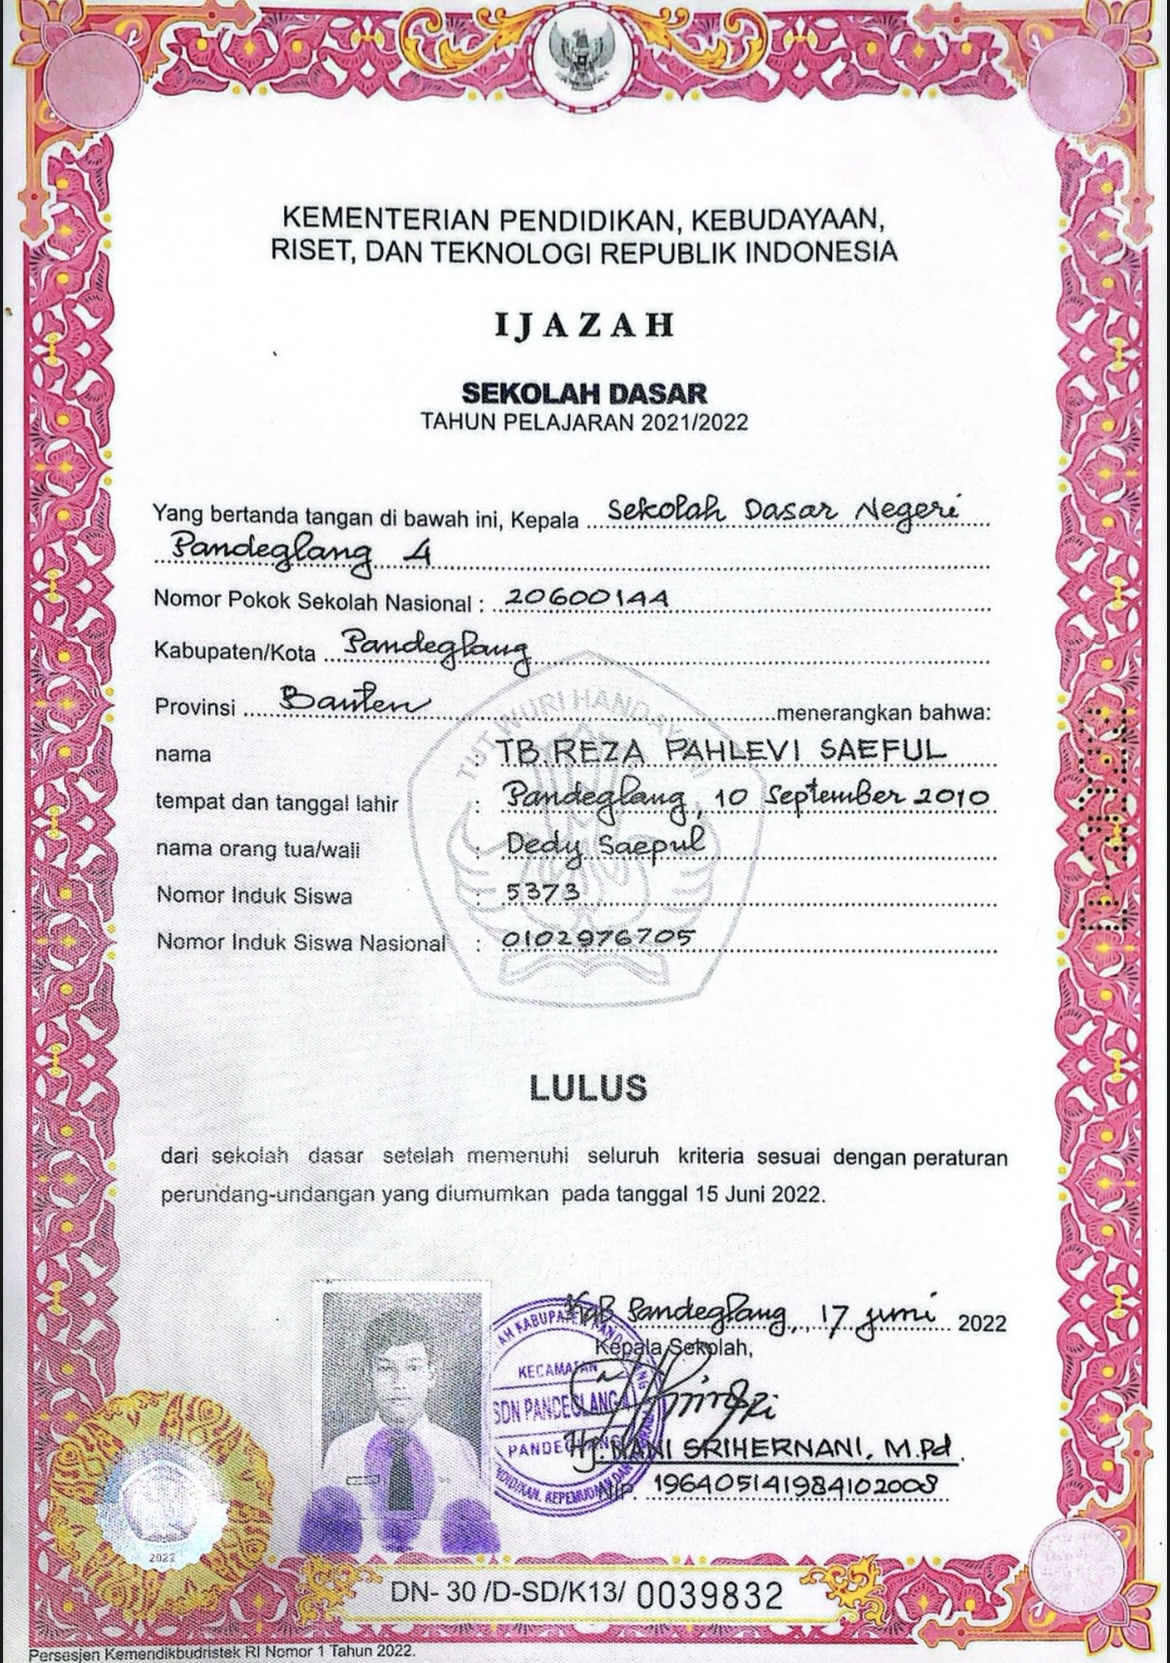 KEMENTERIAN PENDIDIKAN, KEBUDAYAAN,
RISET, DAN TEKNOLOGI REPUBLIK INDONESIA
IJAZAH
SEKOLAH DASAR
TAHUN PELAJARAN 2021/2022
Yang bertanda tangan di bawah ini, Kepala Sekolah Dasar Negeri
Pandeglang 4
Nomor Pokok Sekolah Nasional : 20600144
Kabupaten/Kota Pandeglang
Provinsi Banten menerangkan bahwa:
TUT WURI HANDAYANI
nama : TB. REZA PAHLEVI SAEFUL
tempat dan tanggal lahir : Pandeglang, 10 September 2010
nama orang tua/wali : Dedy Saepul
Nomor Induk Siswa : 5373
Nomor Induk Siswa Nasional : 0102976705
LULUS
dari sekolah dasar setelah memenuhi seluruh kriteria sesuai dengan peraturan
perundang-undangan yang diumumkan pada tanggal 15 Juni 2022.
Kab Pandeglang, 17 juni 2022
Kepala Sekolah,
KECAMATAN
SDN PANDEGLANG 4
PANDEGLANG
Hj. NANI SRIHERNANI, M.Pd.
NIP. 196405141984102008
2022
DN- 30 /D-SD/K13/ 0039832
Persesjen Kemendikbudristek RI Nomor 1 Tahun 2022.